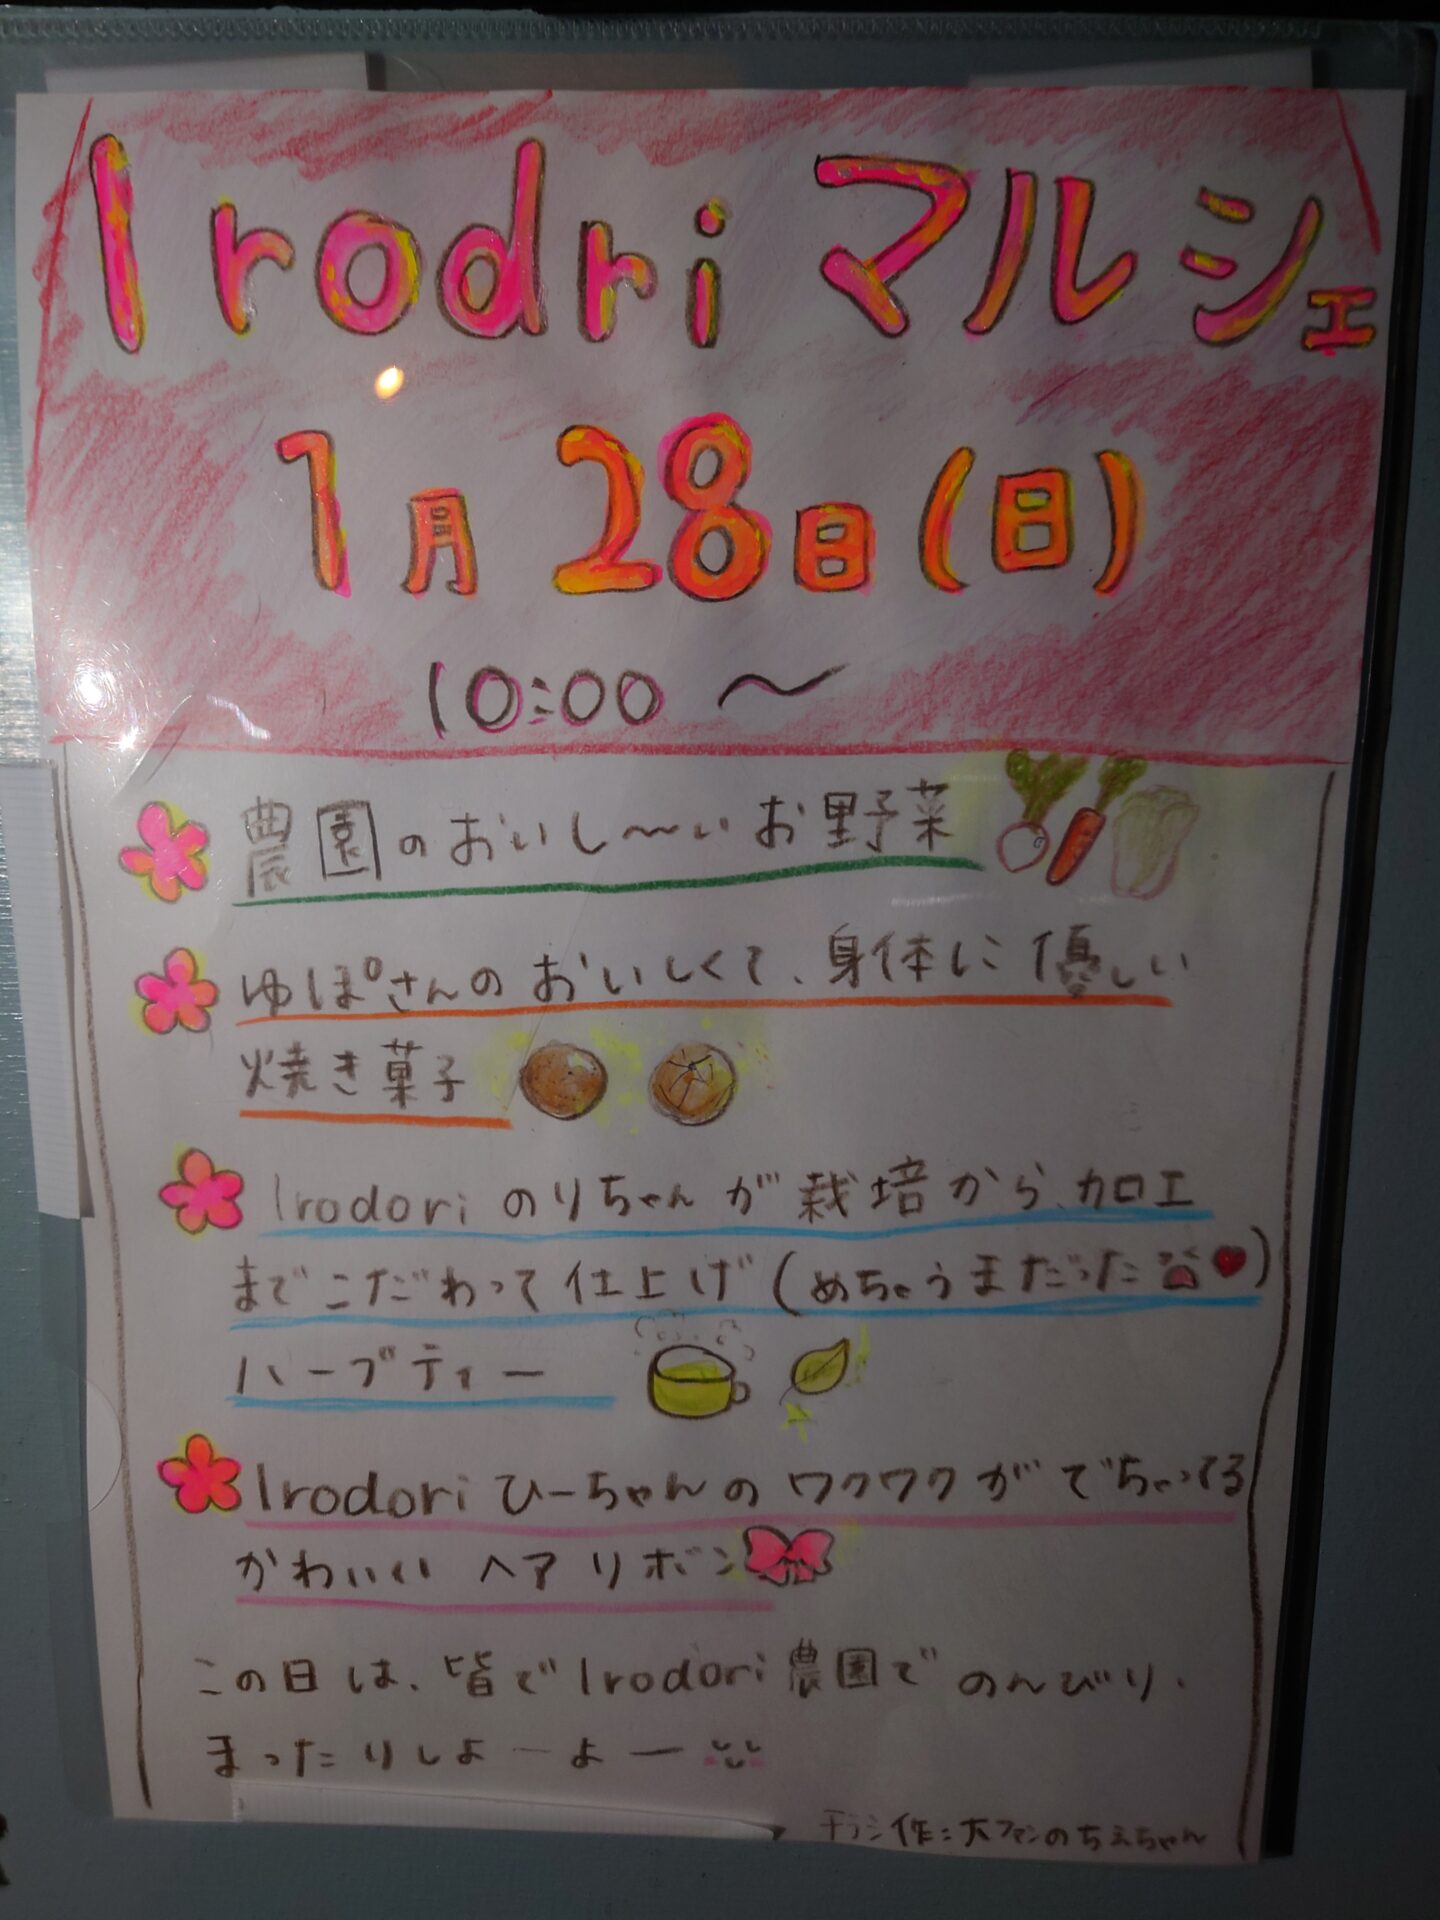 Irodri マルシェ
1月28日(日)
10:00〜
農園のおいし〜いお野菜
ゆぽさんのおいしくて、身体に優しい
焼き菓子
Irodoriのりちゃんが栽培から、加工
までこだわって仕上げ(めちゃうまだった)
ハーブティー
Irodoriひーちゃんのワクワクがでちゃってる
かわいいヘアリボン
この日は、皆でIrodori農園でのんびり、
まったりしよーよー
チラシ作:大ファンのちえちゃん